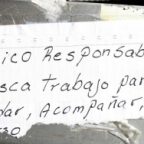 ico Responsab
sca trabajo par
dar, Acompañar,
rso